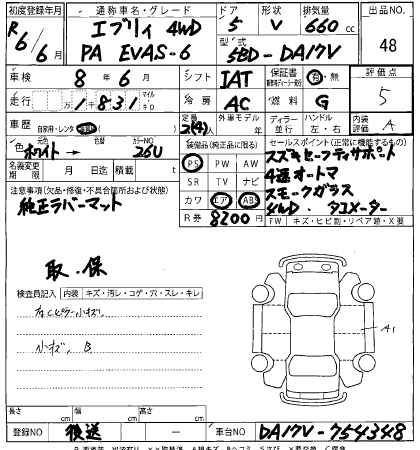 初度登録年月 通称車名・グレード ドア 形状 排気量 出品NO.
R6/6月 エブリィ 4WD 5 V 660cc
PA EVAS-6 型式 5BD-DA17V 48
車検 8年6月 シフト IAT 保証書 有・無 評価点
走行 1,831 マイル キロ 冷房 AC 燃料 G 5
車歴 自家用・レンタ 定員 2(4)人 外車モデル 年 ディーラー 並行 ハンドル 左・右 内装 A
色 元色 ホワイト → 色替 カラーNO 26U 装備品(純正品に限る) セールスポイント(正常に機能するもの)
名義変更期限 月 日迄 積載 t PS PW AW スズキセーフティサポート
注意事項(欠品・修復・不具合箇所および状態) SR TV ナビ 4速オートマ
純正ラバーマット カワ エア ABS スモークガラス
R券 8200円 4WD・タコメーター
FW キズ・ヒビ割・リペア跡・X
取・保
検査員記入 内装 キズ・汚レ・コゲ・穴・スレ・キレ
右Cピラー小キズ
小キズ、B
A1
長さ cm 幅 cm 高さ cm
登録NO 検送 — 車台NO DA17V-754348